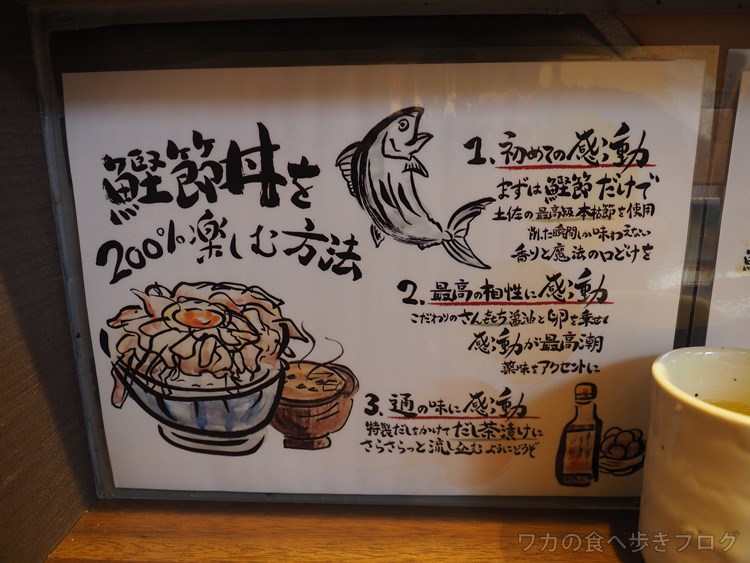 鰹節丼を
200%楽しむ方法
1. 初めての感動
まずは鰹節だけで
土佐の最高級本枯節を使用
削た瞬間しか味わえない
香りと魔法の口どけを
2. 最高の相性に感動
こだわりのさんきち醤油と卵を乗せて
感動が最高潮
薬味をアクセントに
3. 通の味に感動
特製だしをかけてだし茶漬けに
さらさらっと流し込むようにどうぞ
ワカの食べ歩きブログ